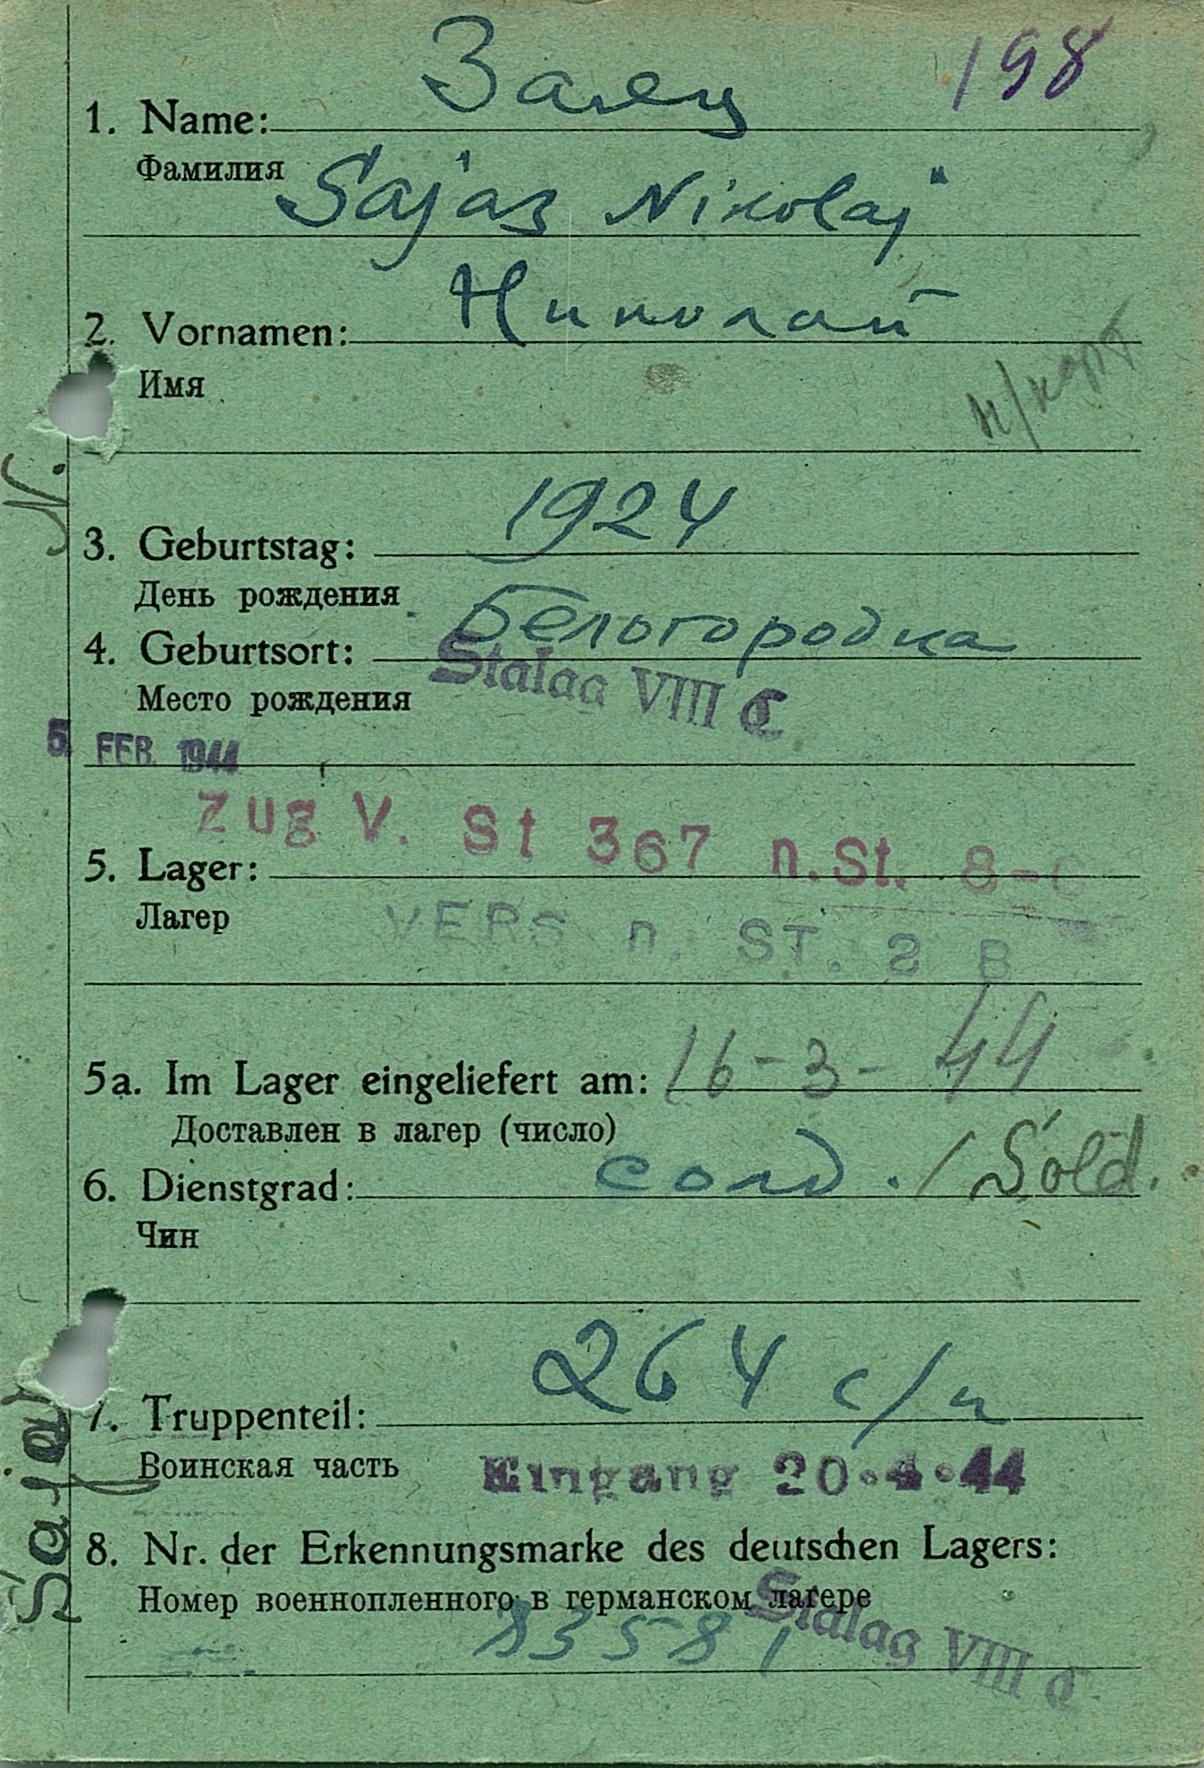 Заяц 198
1. Name:
Фамилия
Sajaz Nikolaj
Николай
2. Vornamen:
Имя
н/карт
N.
1924
3. Geburtstag:
День рождения
Белогородка
4. Geburtsort:
Stalag VIII C
Место рождения
5. FEB. 1944
Zug V. St 367 n. St. 8-C
5. Lager:
Лагер
VERS n. ST. 2 B
5a. Im Lager eingeliefert am: 16-3-44
Доставлен в лагер (число)
6. Dienstgrad: солд. / Sold.
Чин
264 с/п
7. Truppenteil:
Воинская часть
Eingang 20.4.44
8. Nr. der Erkennungsmarke des deutschen Lagers:
Номер военнопленного в германском лагере
83581
Stalag VIII C